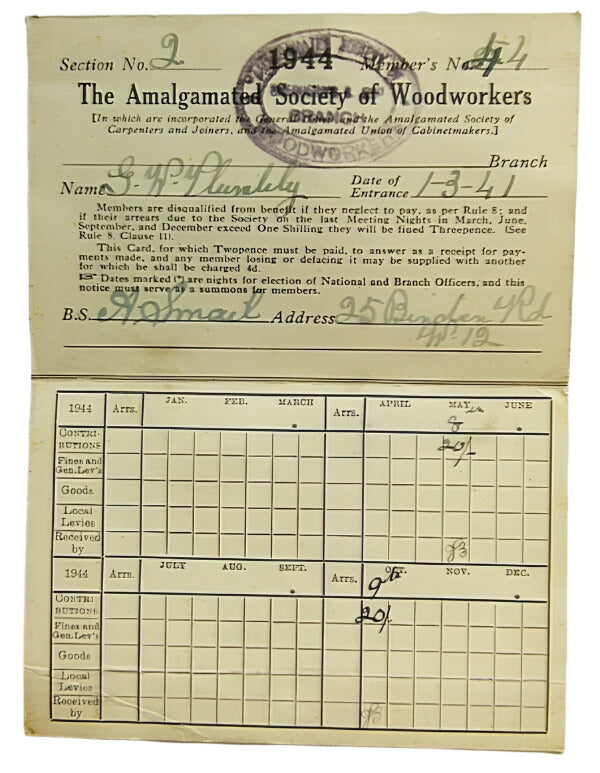 Section No. 2 1944 Member's No. 44
The Amalgamated Society of Woodworkers
[In which are incorporated the General Union and the Amalgamated Society of
Carpenters and Joiners, and the Amalgamated Union of Cabinetmakers.]
BRANCH
WOODWORKERS
Branch
Name G. W. Date of
Entrance 1-3-41
Members are disqualified from benefit if they neglect to pay, as per Rule 8; and
if their arrears due to the Society on the last Meeting Nights in March, June,
September, and December exceed One Shilling they will be fined Threepence. (See
Rule 8, Clause 11).
This Card, for which Twopence must be paid, to answer as a receipt for pay-
ments made, and any member losing or defacing it may be supplied with another
for which he shall be charged 4d.
☞ Dates marked (*) are nights for election of National and Branch Officers, and this
notice must serve as a summons for members.
B.S. A Smail Address 25 Rd
W-12
1944 Arrs. JAN. FEB. MARCH Arrs. APRIL MAY JUNE
8
CONTRI-
BUTIONS 20/-
Fines and
Gen. Lev's
Goods
Local
Levies
Received
by
1944 Arrs. JULY AUG. SEPT. Arrs. OCT. NOV. DEC.
9th
CONTRI-
BUTIONS 20/-
Fines and
Gen. Lev's
Goods
Local
Levies
Received
by